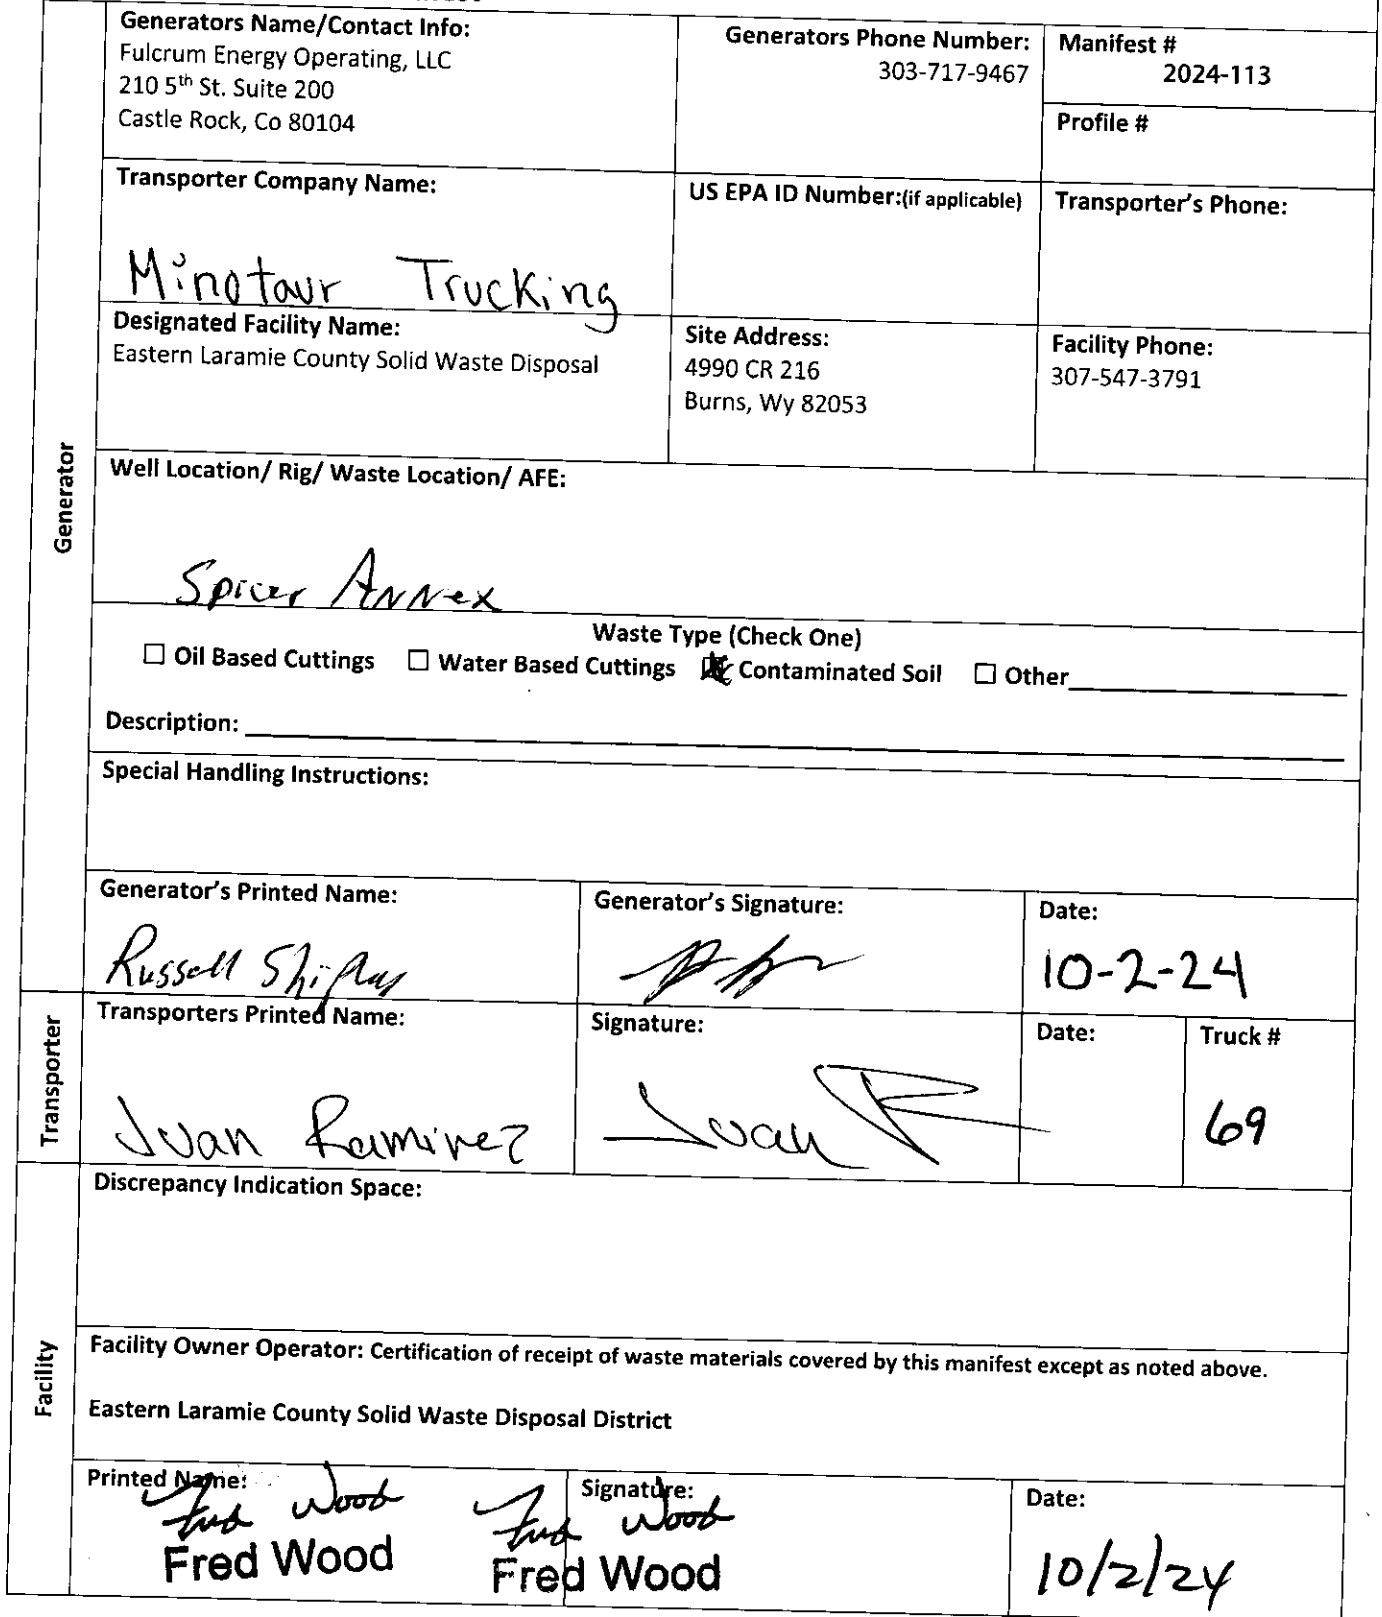 Generators Name/Contact Info:
Fulcrum Energy Operating, LLC
210 5th St. Suite 200
Castle Rock, Co 80104
Generators Phone Number:
303-717-9467
Manifest #
2024-113
Profile #
Transporter Company Name:
Minotaur Trucking
US EPA ID Number:(if applicable)
Transporter's Phone:
Designated Facility Name:
Eastern Laramie County Solid Waste Disposal
Site Address:
4990 CR 216
Burns, Wy 82053
Facility Phone:
307-547-3791
Generator
Well Location/ Rig/ Waste Location/ AFE:
Spicer Annex
Waste Type (Check One)
☐ Oil Based Cuttings ☐ Water Based Cuttings ☒ Contaminated Soil ☐ Other
Description:
Special Handling Instructions:
Generator's Printed Name:
Russell
Generator's Signature:
Date:
10-2-24
Transporter
Transporters Printed Name:
Juan Ramirez
Signature:
Juan R
Date:
Truck #
69
Facility
Discrepancy Indication Space:
Facility Owner Operator: Certification of receipt of waste materials covered by this manifest except as noted above.
Eastern Laramie County Solid Waste Disposal District
Printed Name:
Fred Wood
Fred Wood
Signature:
Fred Wood
Fred Wood
Date:
10/2/24